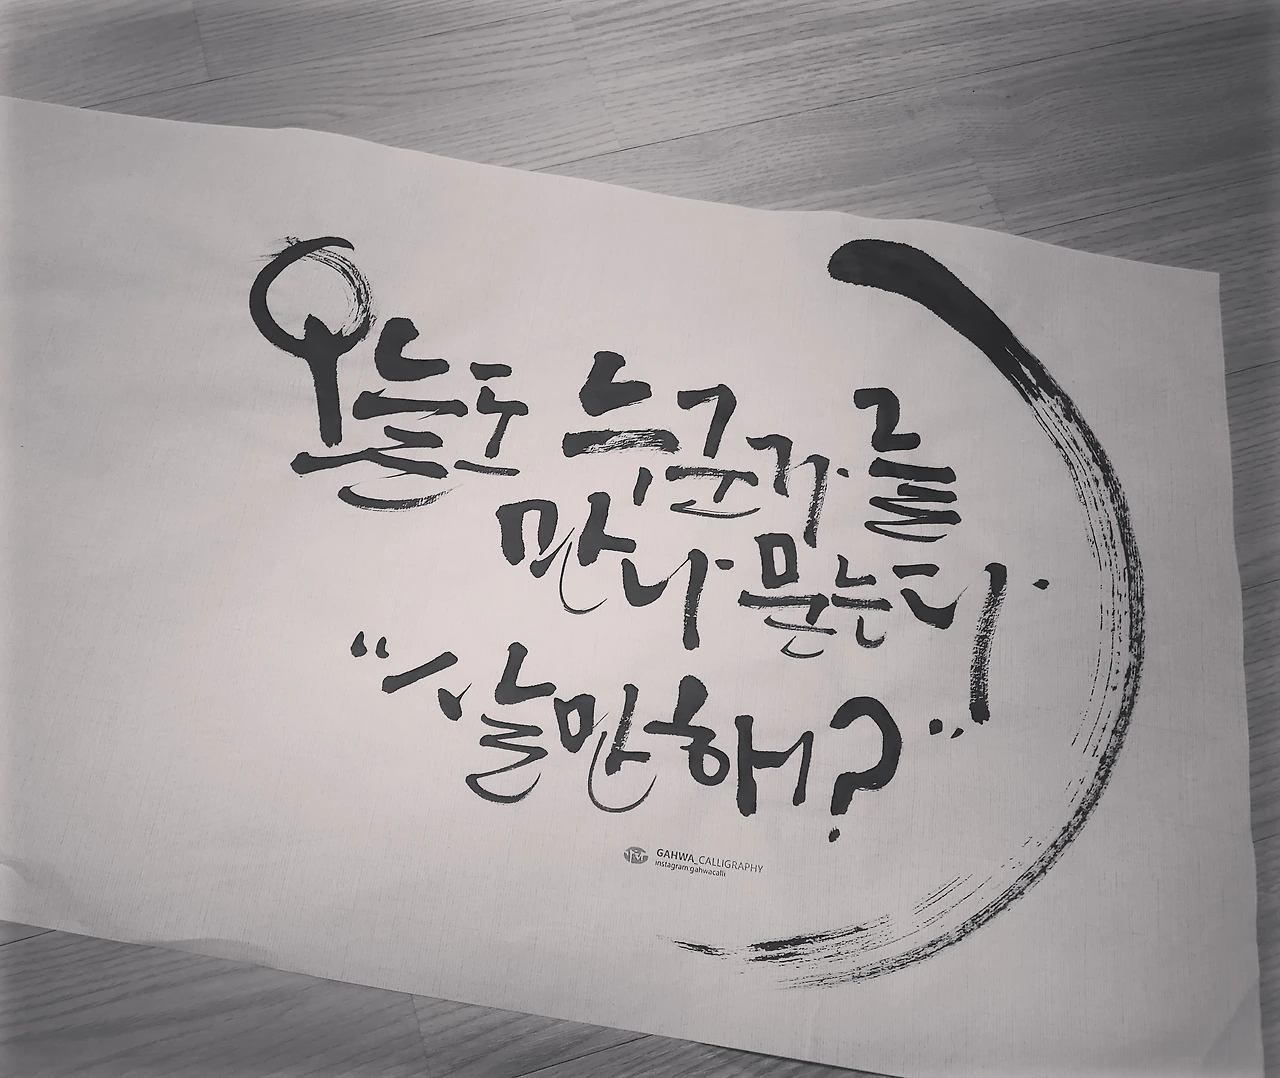 오늘도 누군가를
만나 묻는다
“살만해?”
GAHWA_CALLIGRAPHY
instagram gahwacalli